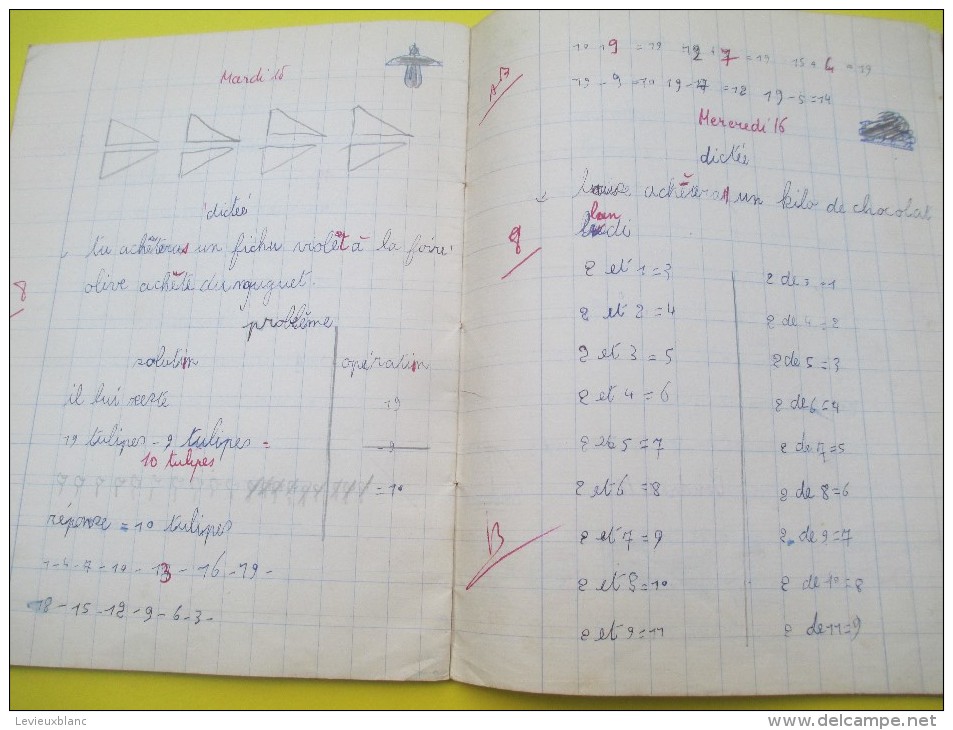 Mardi 15
dictée
tu achèteras un fichu violet à la foire.
olive achète du muguet.
8
problème
solution opération
il lui reste 19
19 tulipes - 9 tulipes = 9
10 tulipes
= 10
réponse = 10 tulipes
1-4-7-10-13-16-19-
18-15-12-9-6-3-
10 + 9 = 19 12 + 7 = 19 15 + 4 = 19
19 - 9 = 10 19 - 7 = 12 19 - 5 = 14
AB
Mercredi 16
dictée
achètera un kilo de chocolat
lundi
8
2 et 1 = 3 2 de 3 = 1
2 et 2 = 4 2 de 4 = 2
2 et 3 = 5 2 de 5 = 3
2 et 4 = 6 2 de 6 = 4
2 et 5 = 7 2 de 7 = 5
2 et 6 = 8 2 de 8 = 6
B
2 et 7 = 9 2 de 9 = 7
2 et 8 = 10 2 de 10 = 8
2 et 9 = 11 2 de 11 = 9
Levieuxblanc
www.delcampe.net